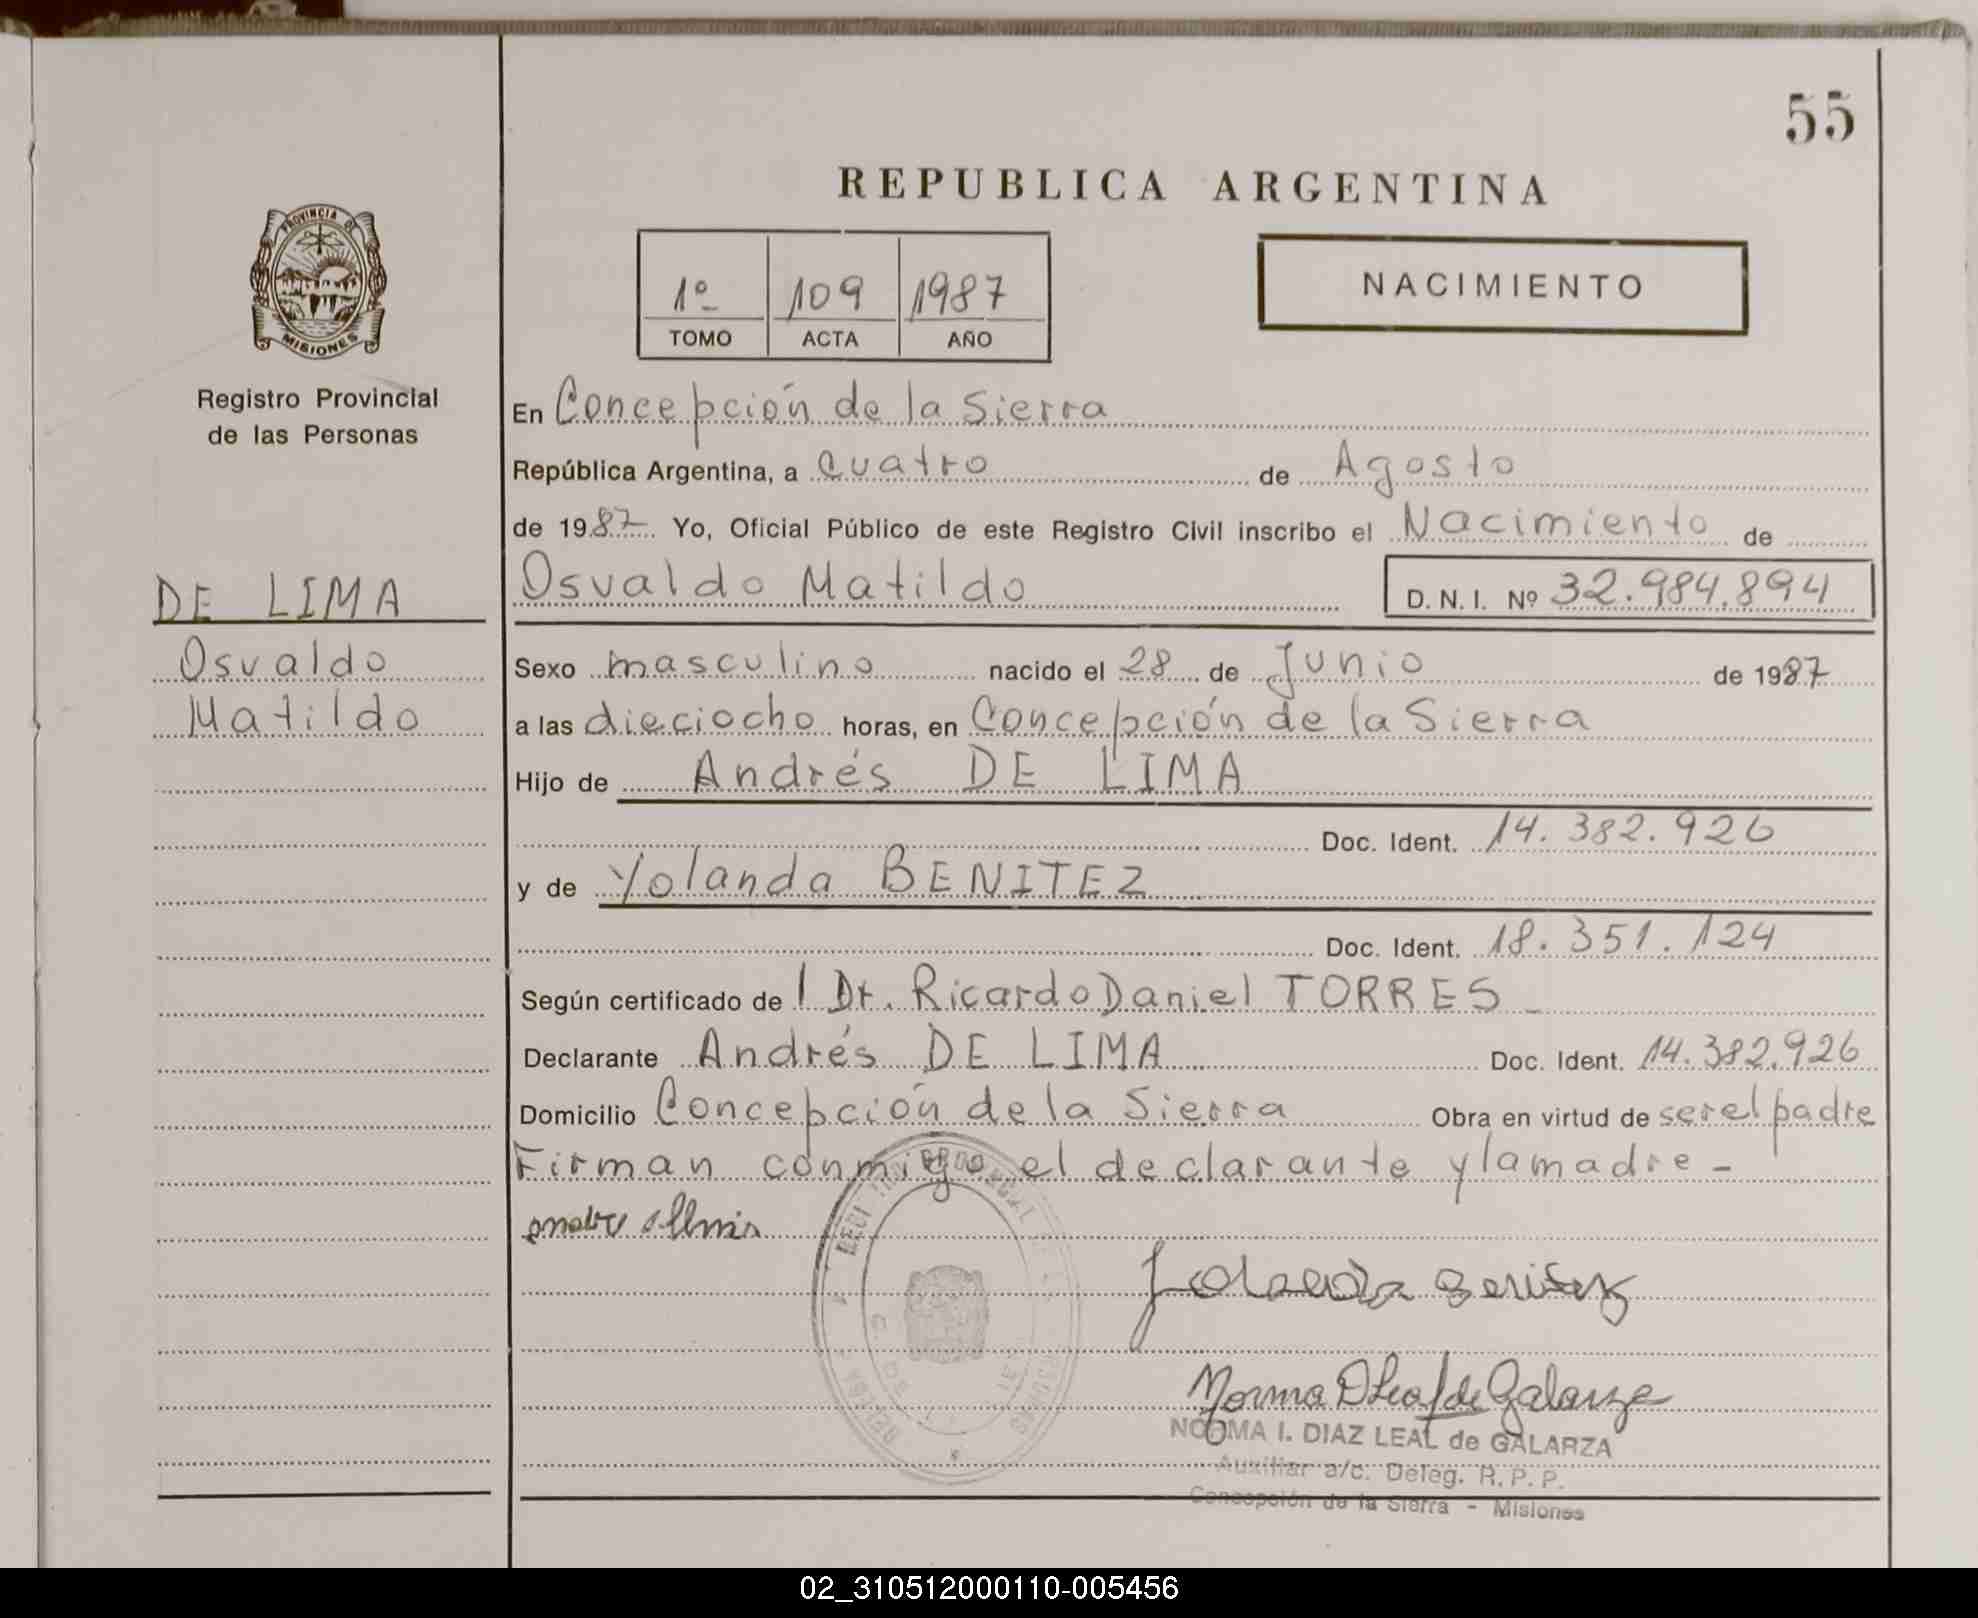 55
REPUBLICA ARGENTINA
PROVINCIA DE
MISIONES
Registro Provincial
de las Personas
1º 109 1987
TOMO ACTA AÑO
NACIMIENTO
En Concepción de la Sierra
República Argentina, a cuatro de Agosto
de 1987 Yo, Oficial Público de este Registro Civil inscribo el Nacimiento de
DE LIMA
Osvaldo
Matildo
Osvaldo Matildo D. N. I. Nº 32.984.894
Sexo masculino nacido el 28 de Junio de 1987
a las dieciocho horas, en Concepción de la Sierra
Hijo de Andrés DE LIMA
Doc. Ident. 14.382.926
y de Yolanda BENITEZ
Doc. Ident. 18.351.124
Según certificado de l Dr. Ricardo Daniel TORRES
Declarante Andrés DE LIMA Doc. Ident. 14.382.926
Domicilio Concepción de la Sierra Obra en virtud de ser el padre
Firman conmigo el declarante y la madre -
Yolanda Benitez
Norma D Leal de Galarza
NORMA I. DIAZ LEAL de GALARZA
Auxiliar a/c. Deleg. R. P. P.
Concepción de la Sierra - Misiones
02_310512000110-005456